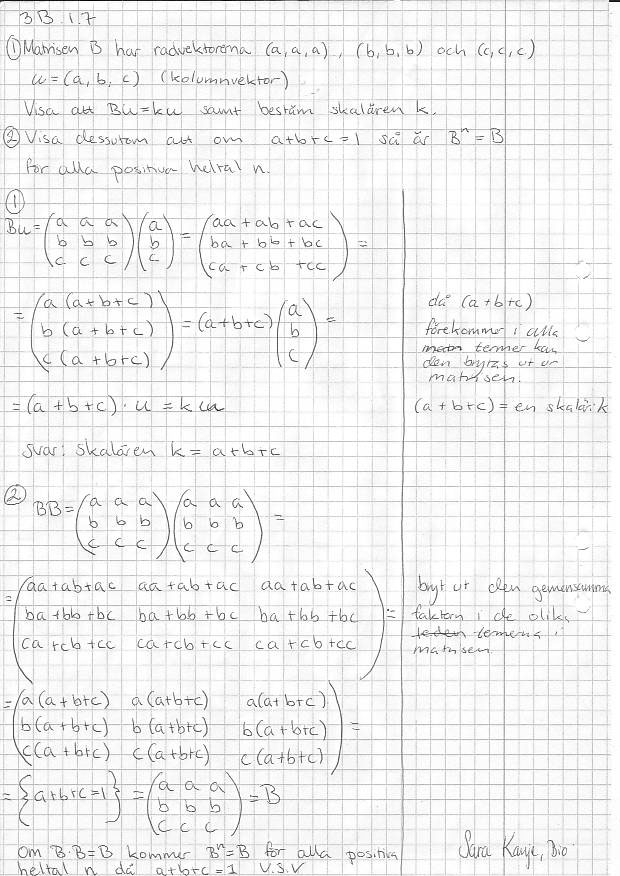 3B.1.7
① Matrisen B har radvektorerna (a,a,a), (b,b,b) och (c,c,c)
u=(a,b,c) (kolumnvektor)
Visa att Bu=ku samt bestäm skalären k.
② Visa dessutom att om a+b+c=1 så är Bⁿ=B
för alla positiva heltal n.
①
Bu= (a a a) (a) = (aa+ab+ac) =
(b b b) (b) (ba+bb+bc)
(c c c) (c) (ca+cb+cc)
= (a(a+b+c)) = (a+b+c) (a) =
(b(a+b+c)) (b)
(c(a+b+c)) (c)
då (a+b+c)
förekommer i alla
termer kan
den brytas ut ur
matrisen.
=(a+b+c)·u = ku
(a+b+c) = en skalär k
svar: skalären k = a+b+c
②
BB= (a a a) (a a a) =
(b b b) (b b b)
(c c c) (c c c)
= (aa+ab+ac aa+ab+ac aa+ab+ac) =
(ba+bb+bc ba+bb+bc ba+bb+bc)
(ca+cb+cc ca+cb+cc ca+cb+cc)
bryt ut den gemensamma
faktorn i de olika
leden termerna i
matrisen.
= (a(a+b+c) a(a+b+c) a(a+b+c)) =
(b(a+b+c) b(a+b+c) b(a+b+c))
(c(a+b+c) c(a+b+c) c(a+b+c))
= {a+b+c=1} = (a a a) = B
(b b b)
(c c c)
Om B·B=B kommer Bⁿ=B för alla positiva
heltal n då a+b+c=1 V.S.V
Sara Bio